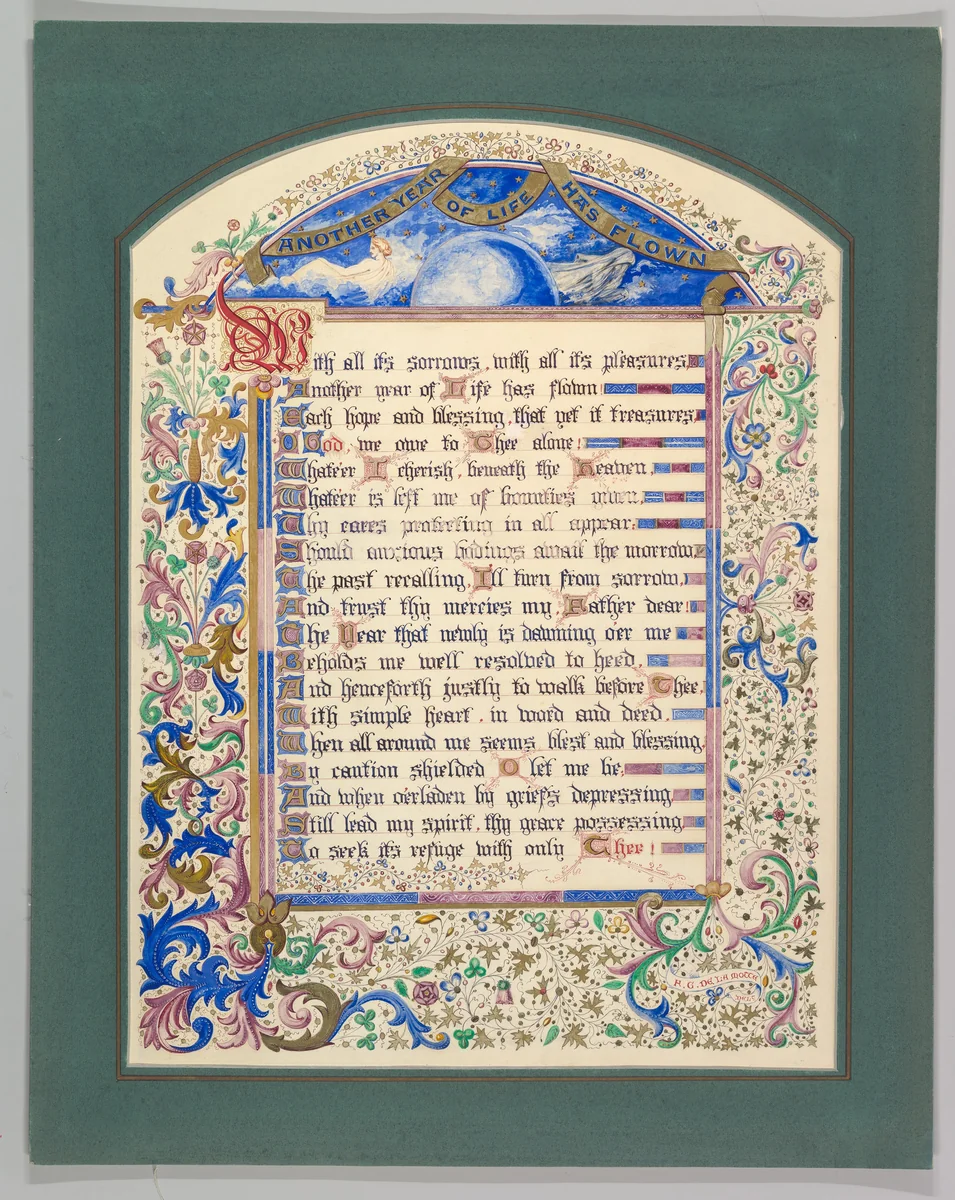 ANOTHER YEAR OF LIFE HAS FLOWN
With all its sorrows, with all its pleasures,
Another year of Life has flown!
Each hope and blessing, that yet it treasures,
O God, we owe to Thee alone!
Whate'er I cherish, beneath the Heaven,
Whate'er is left me of bounties given,
Thy cares protecting in all appear.
Should anxious bodings await the morrow,
The past recalling, I'll turn from sorrow,
And trust thy mercies my Father dear!
The Year that newly is dawning o'er me
Beholds me well resolved to heed,
And henceforth justly to walk before Thee,
With simple heart, in word and deed.
When all around me seems blest and blessing,
By caution shielded O let me be,
And when o'erladen by griefs depressing
Still lead my spirit, thy grace possessing
To seek its refuge with only Thee!
F. G. DE LA MOTTE